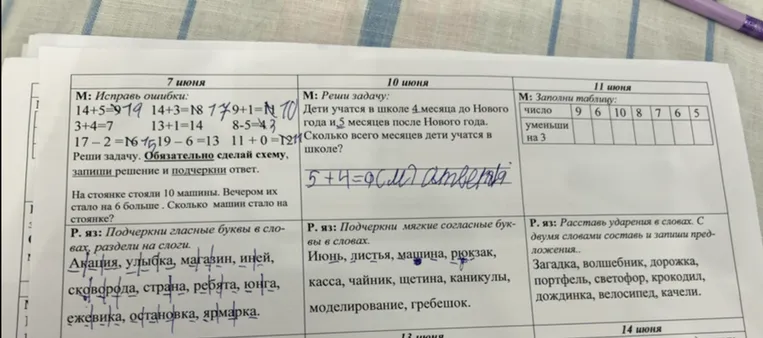 7 июня
М: Исправь ошибки:
14+5=9 19 14+3=18 17 9+1=11 10
3+4=7 13+1=14 8-5=4 3
17 – 2 =16 15 19 – 6 =13 11 + 0 =12 11
Реши задачу. Обязательно сделай схему,
запиши решение и подчеркни ответ.
На стоянке стояли 10 машины. Вечером их
стало на 6 больше . Сколько машин стало на
стоянке?
10 июня
М: Реши задачу:
Дети учатся в школе 4 месяца до Нового
года и 5 месяцев после Нового года.
Сколько всего месяцев дети учатся в
школе?
5+4=9(м)
11 июня
М: Заполни таблицу:
число 9 6 10 8 7 6 5
уменьши
на 3
Р. яз: Подчеркни гласные буквы в сло-
вах, раздели на слоги.
Акация, улыбка, магазин, иней,
сковорода, страна, ребята, юнга,
ежевика, остановка, ярмарка.
Р. яз: Подчеркни мягкие согласные бук-
вы в словах.
Июнь, листья, машина, рюкзак,
касса, чайник, щетина, каникулы,
моделирование, гребешок.
Р. яз: Расставь ударения в словах. С
двумя словами составь и запиши пред-
ложения..
Загадка, волшебник, дорожка,
портфель, светофор, крокодил,
дождинка, велосипед, качели.
13 июня
14 июня